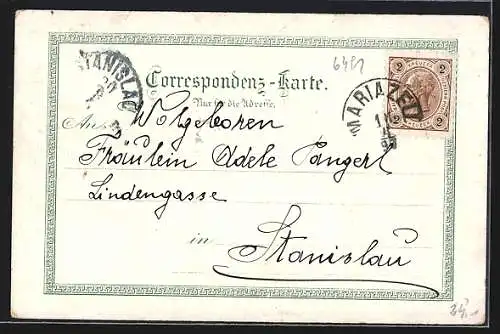 6481
STANISLAU
Correspondenz-Karte.
Nur für die Adresse.
MARIAZELL
2 KREUZER 2
2 2
An Wolgeboren
Fräulein Adele Pangerl
Lindengasse
in Stanislau